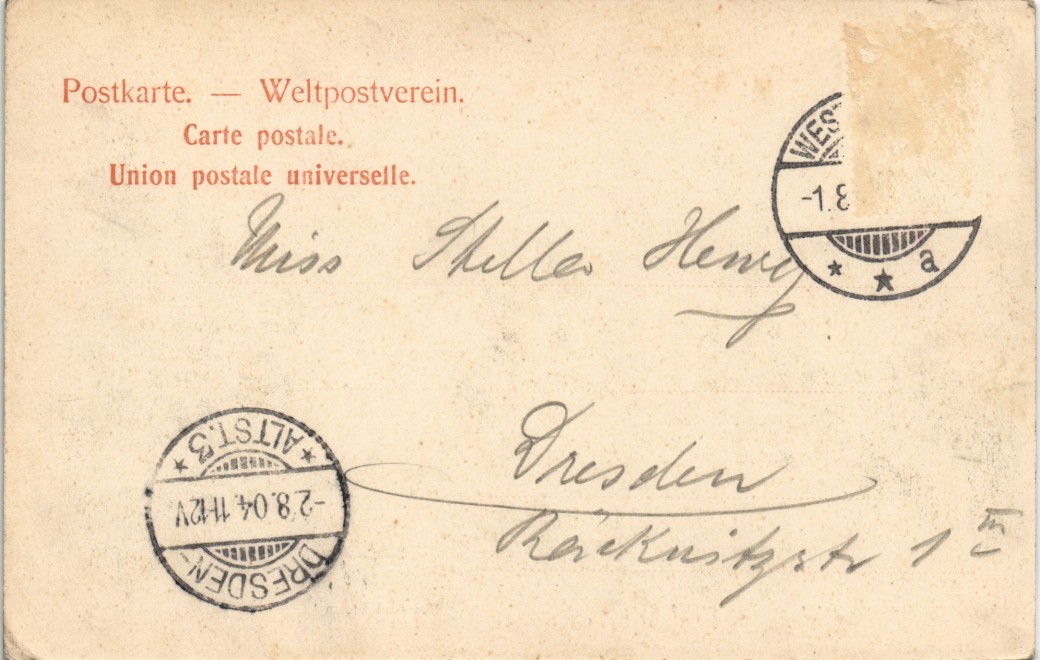 Postkarte. — Weltpostverein.
Carte postale.
Union postale universelle.
WEST
-1.8
* * a
Miss Stella Henry
Dresden
Räcknitzstr 1 III
* ALTST.3 *
-2.8.04.11-12V.
DRESDEN-